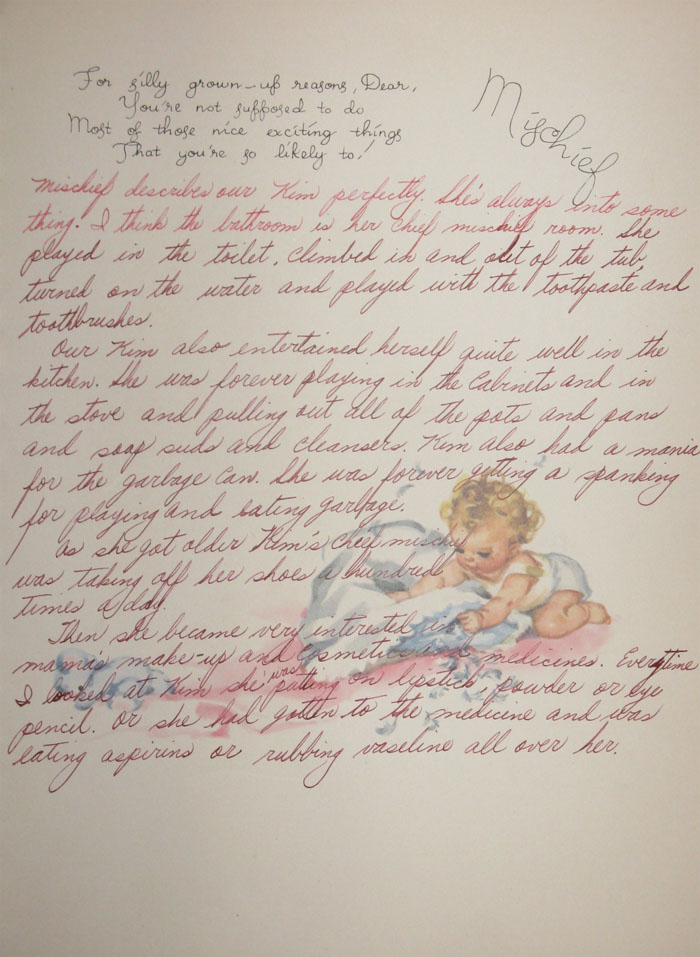 For silly grown-up reasons, Dear,
You're not supposed to do
Most of those nice exciting things
That you're so likely to!
Mischief
Mischief describes our Kim perfectly. She's always into some
thing. I think the bathroom is her chief mischief room. She
played in the toilet, climbed in and out of the tub
turned on the water and played with the toothpaste and
toothbrushes.
Our Kim also entertained herself quite well in the
kitchen. She was forever playing in the cabinets and in
the stove and pulling out all of the pots and pans
and soap suds and cleansers. Kim also had a mania
for the garbage can. She was forever getting a spanking
for playing and eating garbage.
As she got older Kim's chief mischief
was taking off her shoes a hundred
times a day.
Then she became very interested in
mama's make-up and cosmetics and medicines. Everytime
I looked at Kim she was putting on lipstick, powder or eye
pencil. Or she had gotten to the medicine and was
eating aspirins or rubbing vaseline all over her.